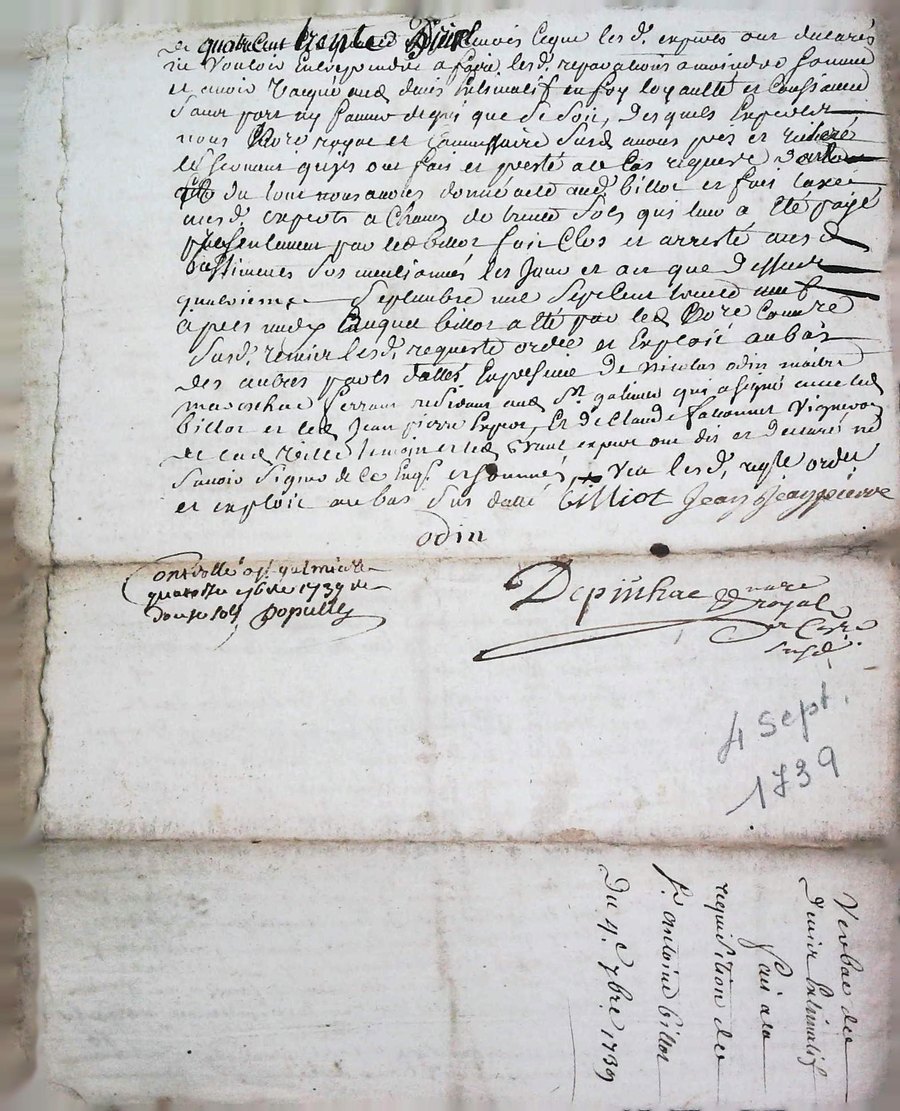 de quatre cent trente huit livres ceque lesd. experts ont declarés
ne vouloir entreprendre a faire lesd. reparations a moindre somme
et avoir vacqué aud. devis estimatif en foy loyaulté et conscience
sans port ny faveur de qui que ce soit, desquels experts
nous Nore royal et commissaire susd. avons pris et
le serment qu'ils ont fait et presté a et
du tout nous avons donné acte aud. billot et fait taxe
auxd. experts a chacun de trente sols qui leur a été payé
presentement par led. billot fait clos et arresté
bastiments sus mentionnés les jour et an que dessus
quatrieme septembre mil sept cent trente neuf
apres auquel billot a été par led. Nore Comre
susd. remis lesd. requeste ordce et exploit au bas
des autres parts dattés En presence de nicolas odin maitre
marechal ferrant residant aud. St. galmier qui a signé avec led.
billot et led. Jean pierre Expert, Et de Claude vigneron
de lad. ville temoins et led. expert ont dit et declaré ne
savoir signer de ce Enqs. et sommés, Veu lesd. reqte ordce
et exploit au bas sus datté billiot Jean Jeanpierre
odin
Controllé a St galmier le
quatorze 7bre 1739 re
douze sols
Depinhac nore
royal
et Comre
susd.
4 sept.
1739
Verbac de
devis Estimatif
fait a la
requisition de
Sr. antoine billot
Du 4.e 7bre 1739